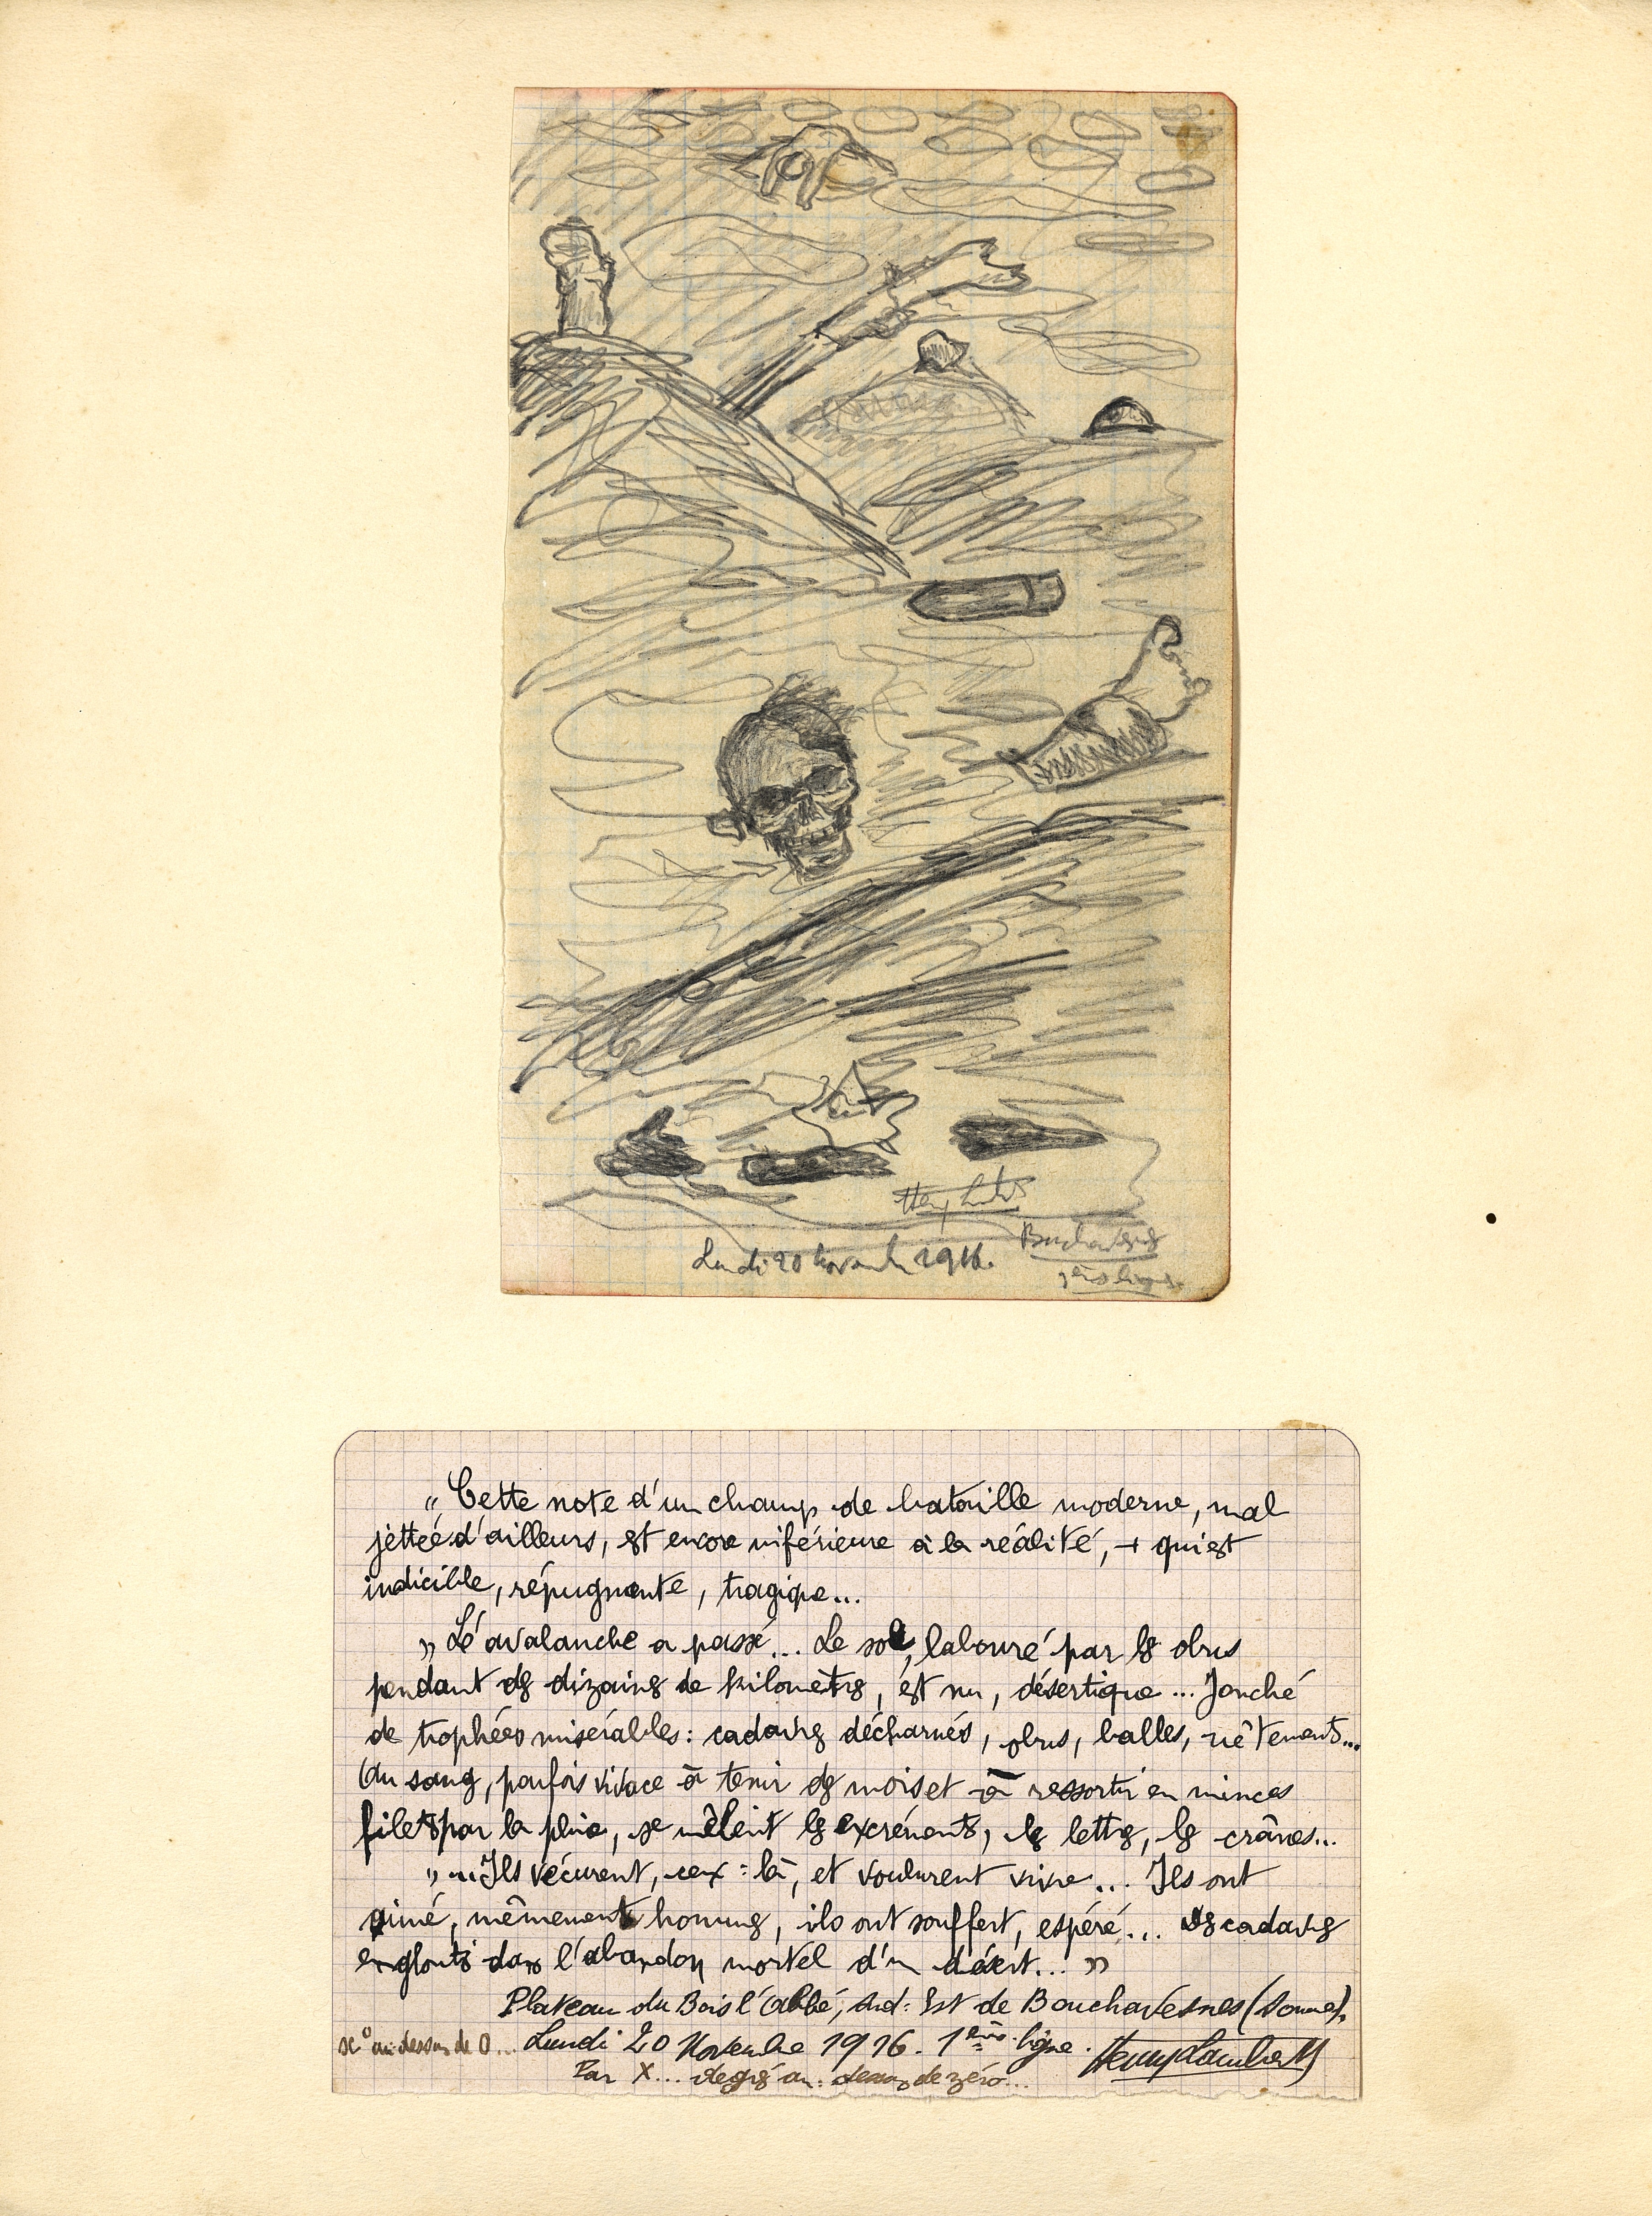 Lundi 20 Novembre 1916.
Bouchavesnes
1ère ligne.
" Cette note d'un champ de bataille moderne, mal
jettée d'ailleurs, est encore inférieure à la réalité, + qui est
indicible, répugnante, tragique...
" L'avalanche a passé... Le sol, labouré par les obus
pendant des dizaines de kilomètres, est nu, désertique... Jonché
de trophées misérables : cadavres décharnés, obus, balles, vêtements...
Au sang, parfois vivace à tenir des mois et à ressortir en minces
filets par la pluie, se mêlent les excréments, les lettres, les crânes...
" ...Ils vécurent, ceux-là, et voulurent vivre... Ils ont
aimé, mêmement hommes, ils ont souffert, espéré... cadavres
engloutis dans l'abandon mortel d'un désert... "
Plateau du Bois l'Abbé, Sud-Est de Bouchavesnes (Somme).
x° au dessus de 0... Lundi 20 Novembre 1916. 1ère ligne. Henry Lambert
Par X... degrés au-dessous de zéro...